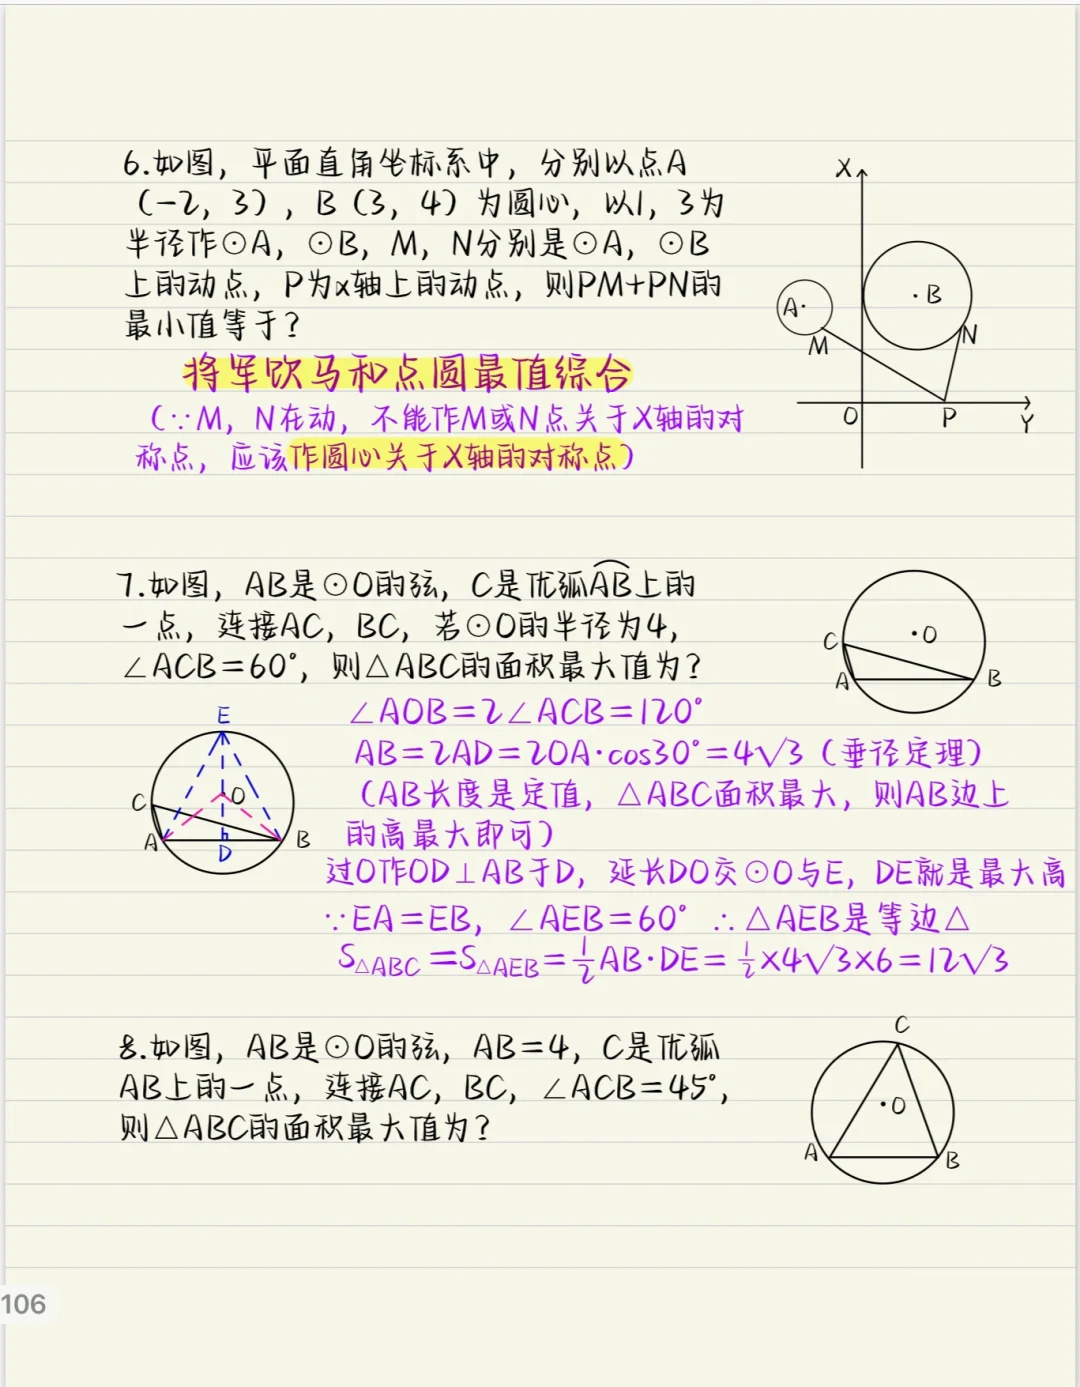 6.如图，平面直角坐标系中，分别以点A
（-2，3），B（3，4）为圆心，以1，3为
半径作⊙A，⊙B，M，N分别是⊙A，⊙B
上的动点，P为x轴上的动点，则PM+PN的
最小值等于？
X
A
B
M
N
O
P
Y
将军饮马和点圆最值综合
（∵M，N在动，不能作M或N点关于X轴的对
称点，应该作圆心关于X轴的对称点）
7.如图，AB是⊙O的弦，C是优弧AB上的
一点，连接AC，BC，若⊙O的半径为4，
∠ACB=60°，则△ABC的面积最大值为？
O
C
A
B
E
C
O
A
B
D
∠AOB=2∠ACB=120°
AB=2AD=2OA·cos30°=4√3（垂径定理）
（AB长度是定值，△ABC面积最大，则AB边上
的高最大即可）
过O作OD⊥AB于D，延长DO交⊙O与E，DE就是最大高
∵EA=EB，∠AEB=60° ∴△AEB是等边△
S△ABC=S△AEB=1/2AB·DE=1/2×4√3×6=12√3
8.如图，AB是⊙O的弦，AB=4，C是优弧
AB上的一点，连接AC，BC，∠ACB=45°，
则△ABC的面积最大值为？
C
O
A
B
106